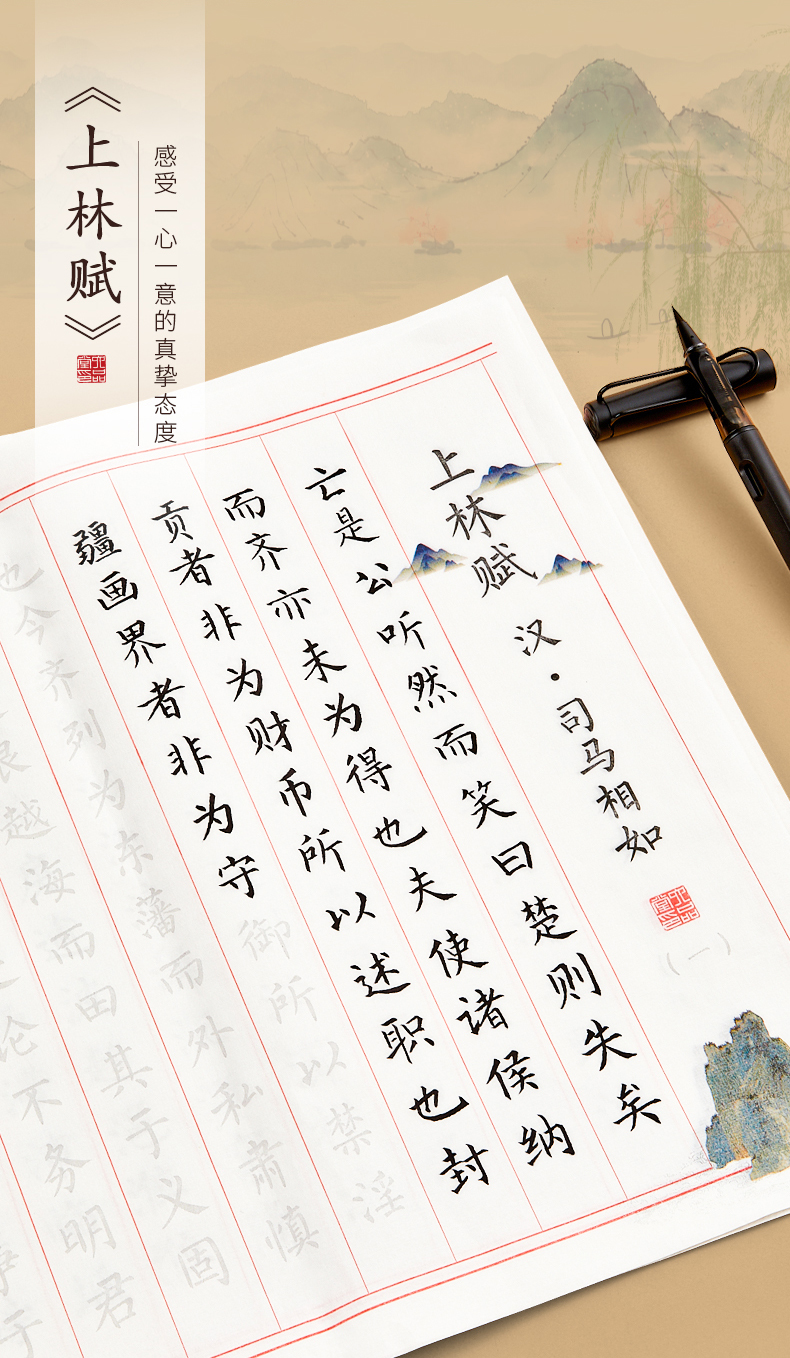 《上林赋》
感受一心一意的真挚态度
上林赋
汉·司马相如
(一)
亡是公听然而笑曰楚则失矣
而齐亦未为得也夫使诸侯纳
贡者非为财币所以述职也封
疆画界者非为守御所以禁淫
也今齐列为东藩而外私肃慎
越海而田其于义固
论不务明君
于